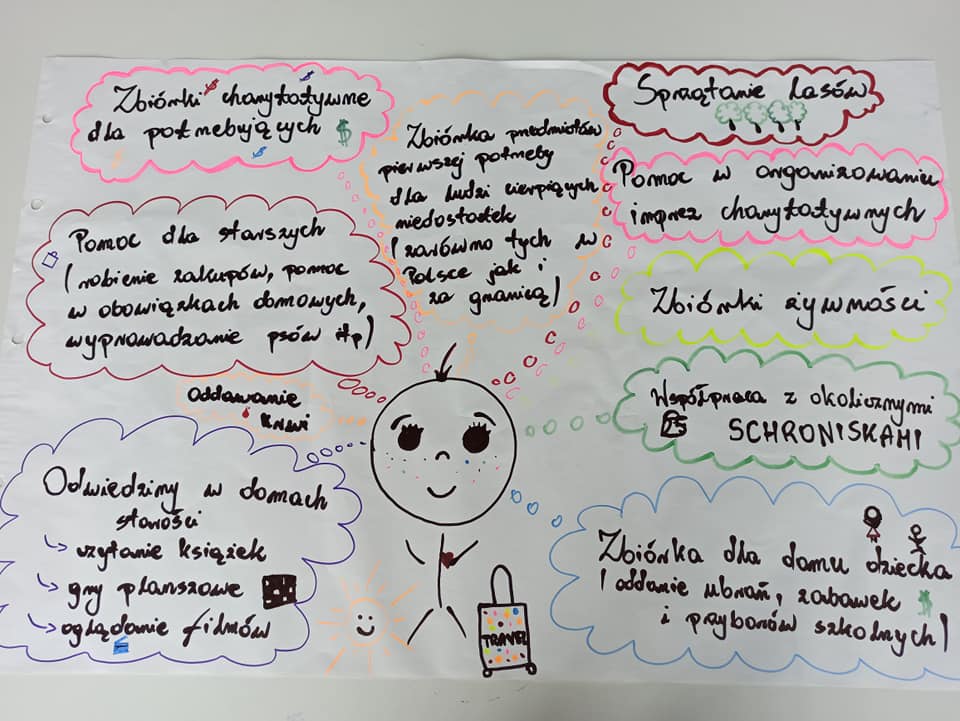 Zbiórki charytatywne
dla potrzebujących $
Zbiórka przedmiotów
pierwszej potrzeby
dla ludzi cierpiących
niedostatek
(zarówno tych w
Polsce jak i
za granicą)
Sprzątanie Lasów
Pomoc w organizowaniu
imprez charytatywnych
Pomoc dla starszych
(robienie zakupów, pomoc
w obowiązkach domowych,
wyprowadzanie psów itp)
Zbiórki żywności
Oddawanie
krwi
Współpraca z okolicznymi
SCHRONISKAMI
Odwiedziny w domach
starości
↳ czytanie książek
↳ gry planszowe
↳ oglądanie filmów
Zbiórka dla domu dziecka
(oddanie ubrań, zabawek $
i przyborów szkolnych)
TRAVEL